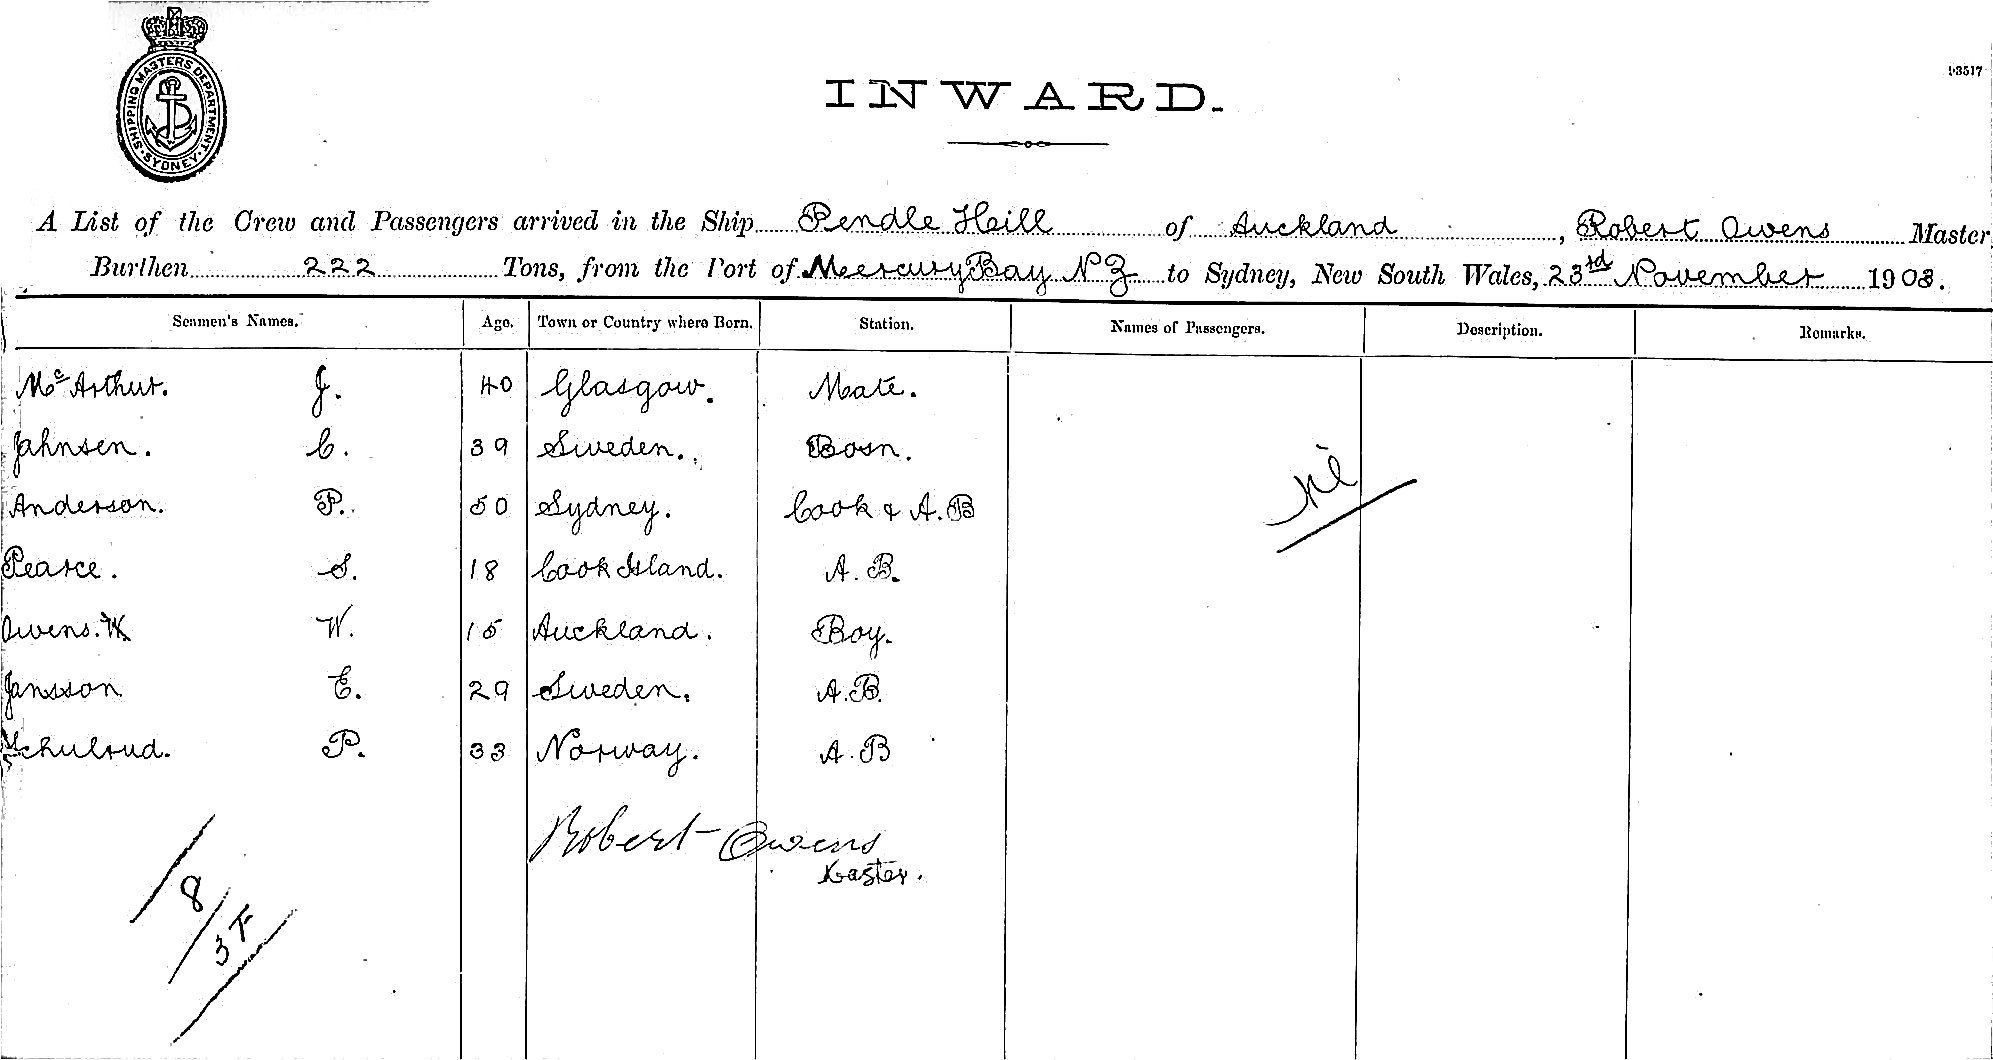 SHIPPING MASTERS DEPARTMENT
SYDNEY
93517
INWARD.
A List of the Crew and Passengers arrived in the Ship Pendle Hill of Auckland, Robert Owens Master
Burthen 222 Tons, from the Port of Mercury Bay NZ to Sydney, New South Wales, 23rd November 1903.
Seamen's Names. Age. Town or Country where Born. Station. Names of Passengers. Description. Remarks.
McArthur. J. 40 Glasgow. Mate.
Jahnsen. C. 39 Sweden. Bosn.
Nil
Anderson. P. 50 Sydney. Cook & A.B
Pearce. S. 18 Cook Island. A.B.
Owens. W. 15 Auckland. Boy.
Jansson E. 29 Sweden. A.B.
Schulrud. P. 33 Norway. A.B
Robert Owens
Master.
8
3F